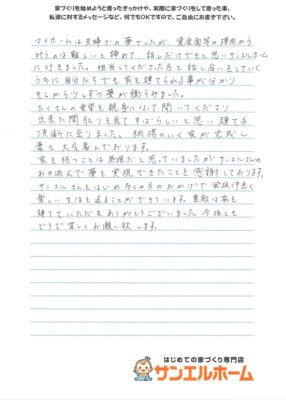 家づくりを始めようと思ったきっかけや、実際に家づくりをして思った事、
私達に対するメッセージなど、何でもOKですので、ご自由にお書き下さい。
マイホームは夫婦での夢でしたが、資金面等の理由から
叶うのは難しいと諦めて、話しだけでもと思いサンエルホーム
に行きました。担当してくださった方と話し合いをしていく
うちに自分たちでも家を建てられる事が分かり
そこから少しずつ夢が膨らみました。
たくさんの希望を親身になって聞いてくださり
出来た間取りを見てすばらしいと思い建てる
決断に至りました。納得のいく家が完成し
妻も大変喜んでおります。
家を持つことは無理だと思っていましたがサンエルさんの
お力添えで夢を実現できたことを感謝しております。
サンエルさんをはじめ多くの方のおかげで家族仲良く
楽しい生活を送ることができています。素敵な家を
建てていただきありがとうございました。今後とも
どうぞ宜しくお願い致します。
はじめての家づくり専門店
サンエルホーム